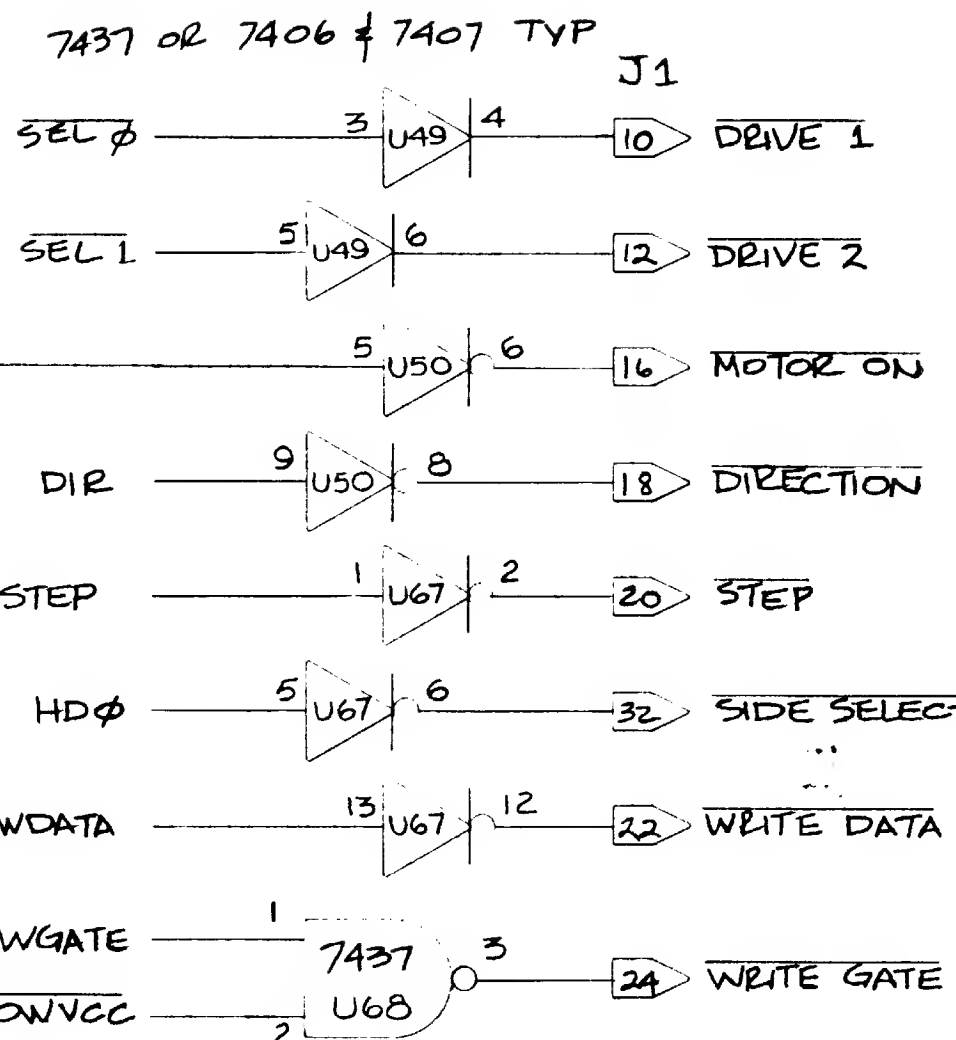 7437 OR 7406 & 7407 TYP
J1
SEL Ø 3 U49 4 10 DRIVE 1
SEL 1 5 U49 6 12 DRIVE 2
5 U50 6 16 MOTOR ON
DIR 9 U50 8 18 DIRECTION
STEP 1 U67 2 20 STEP
HDØ 5 U67 6 32 SIDE SELEC
WDATA 13 U67 12 22 WRITE DATA
WGATE 1 7437 3 24 WRITE GATE
OWVCC 2 U68